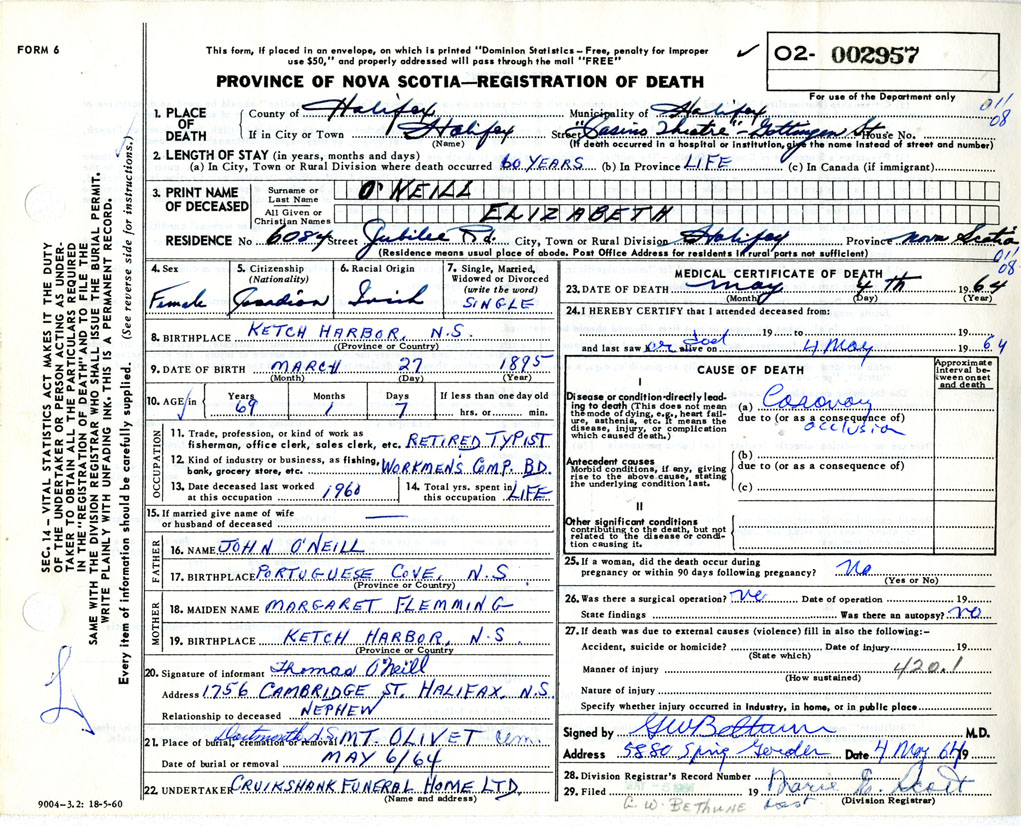 FORM 6
This form, if placed in an envelope, on which is printed "Dominion Statistics – Free, penalty for improper
use $50," and properly addressed will pass through the mail "FREE"
✓ O2- 002957
PROVINCE OF NOVA SCOTIA—REGISTRATION OF DEATH
For use of the Department only
011
08
1. PLACE OF DEATH
County of Halifax Municipality of Halifax
If in City or Town Halifax Street "Casino Theatre" - Gottingen St. House No.
(Name) (If death occurred in a hospital or institution, give the name instead of street and number)
2. LENGTH OF STAY (in years, months and days)
(a) In City, Town or Rural Division where death occurred 60 YEARS (b) In Province LIFE (c) In Canada (if immigrant)
3. PRINT NAME OF DECEASED
Surname or Last Name O'NEILL
All Given or Christian Names ELIZABETH
RESIDENCE No 6084 Street Jubilee Rd. City, Town or Rural Division Halifax Province Nova Scotia
(Residence means usual place of abode. Post Office Address for residents in rural parts not sufficient)
011
08
4. Sex Female
5. Citizenship (Nationality) Canadian
6. Racial Origin Irish
7. Single, Married, Widowed or Divorced (write the word) SINGLE
8. BIRTHPLACE KETCH HARBOR, N.S.
(Province or Country)
9. DATE OF BIRTH MARCH 27 1895
(Month) (Day) (Year)
10. AGE in Years 69 Months 1 Days 7 If less than one day old hrs. or min.
OCCUPATION
11. Trade, profession, or kind of work as
fisherman, office clerk, sales clerk, etc. RETIRED TYPIST
12. Kind of industry or business, as fishing,
bank, grocery store, etc. WORKMEN'S COMP. BD.
13. Date deceased last worked
at this occupation 1960
14. Total yrs. spent in
this occupation LIFE
15. If married give name of wife
or husband of deceased —
FATHER
16. NAME JOHN O'NEILL
17. BIRTHPLACE PORTUGUESE COVE, N.S
(Province or Country)
MOTHER
18. MAIDEN NAME MARGARET FLEMMING
19. BIRTHPLACE KETCH HARBOR, N.S
(Province or Country
20. Signature of informant Thomas O'Neill
Address 1756 CAMBRIDGE ST. HALIFAX, N.S.
Relationship to deceased NEPHEW
21. Place of burial, cremation or removal Dartmouth N.S. MT. OLIVET Cem.
Date of burial or removal MAY 6/64
22. UNDERTAKER CRUIKSHANK FUNERAL HOME LTD.
(Name and address)
9004-3.2: 18-5-60
MEDICAL CERTIFICATE OF DEATH
23. DATE OF DEATH May 4th 1964
(Month) (Day) (Year)
24. I HEREBY CERTIFY that I attended deceased from:
19 to 19
and last saw er dead alive on 4 May 1964
CAUSE OF DEATH
Approximate interval between onset and death
I
Disease or condition directly leading to death (This does not mean the mode of dying, e.g., heart failure, asthenia, etc. It means the disease, injury, or complication which caused death.)
(a) Coronary
due to (or as a consequence of)
occlusion
Antecedent causes
Morbid conditions, if any, giving rise to the above cause, stating the underlying condition last.
(b)
due to (or as a consequence of)
(c)
II
Other significant conditions
contributing to the death, but not related to the disease or condition causing it.
25. If a woman, did the death occur during
pregnancy or within 90 days following pregnancy? No
(Yes or No)
26. Was there a surgical operation? No Date of operation 19
State findings Was there an autopsy? No
27. If death was due to external causes (violence) fill in also the following:–
Accident, suicide or homicide? Date of injury 19
(State which)
Manner of injury 420.1
(How sustained)
Nature of injury
Specify whether injury occurred in industry, in home, or in public place
Signed by GW Bethune M.D.
Address 5880 Spring Garden Date 4 May 64 19
28. Division Registrar's Record Number
29. Filed 19 Marie E. Scott
(Division Registrar)
G.W. BETHUNE
SEC. 14 – VITAL STATISTICS ACT MAKES IT THE DUTY
OF THE UNDERTAKER OR PERSON ACTING AS UNDER-
TAKER TO OBTAIN ALL THE PARTICULARS REQUIRED
IN THE "REGISTRATION OF DEATH" AND TO FILE THE
SAME WITH THE DIVISION REGISTRAR WHO SHALL ISSUE THE BURIAL PERMIT.
WRITE PLAINLY WITH UNFADING INK. THIS IS A PERMANENT RECORD.
Every item of information should be carefully supplied. (See reverse side for instructions.)